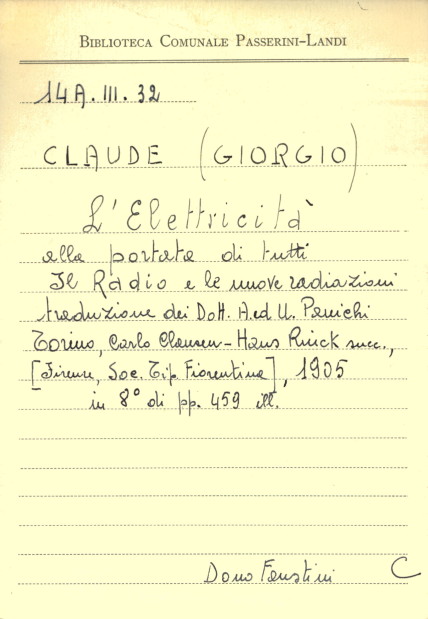 BIBLIOTECA COMUNALE PASSERINI-LANDI
14A. III. 32
CLAUDE (GIORGIO)
L'Elettricità
alla portata di tutti
Il Radio e le nuove radiazioni
traduzione dei Dott. A. ed U. Panichi
Torino, Carlo Clausen-Hans Rinck succ.,
[Firenze, Soc. Tip. Fiorentina], 1905
in 8° di pp. 459 ill.
Dono Faustini C